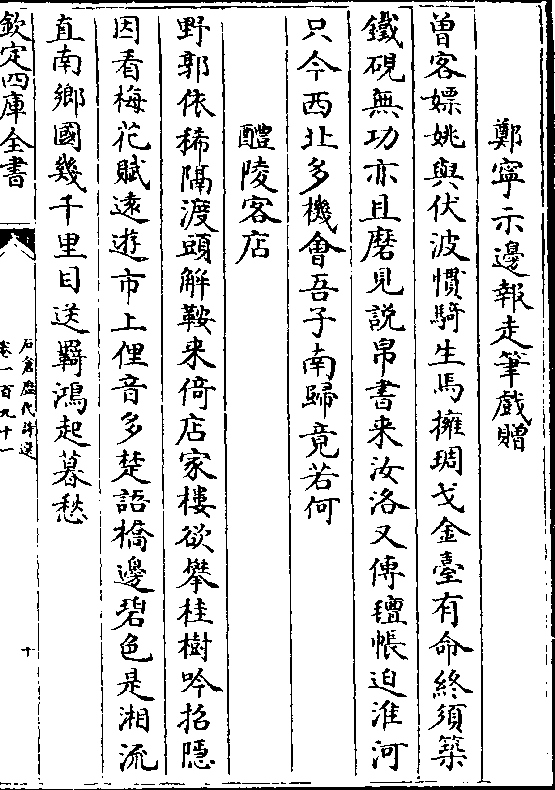 鄭寧示邊報走筆戲贈
曽客嫖姚與伏波慣騎生馬擁琱戈金臺有命終須築
鐵硯無功亦且磨見說帛書来汝洛又傳氊帳迫淮河
只今西北多機會吾子南歸竟若何
醴陵客店
野郭依稀隔渡頭解鞍来倚店家樓欲攀桂樹吟招隱
因看梅花賦逺遊市上俚音多楚語橋邊碧色是湘流
直南鄉國幾千里目送羇鴻起暮愁
欽定四庫全書
石倉歷代詩選
卷一百九十一
十